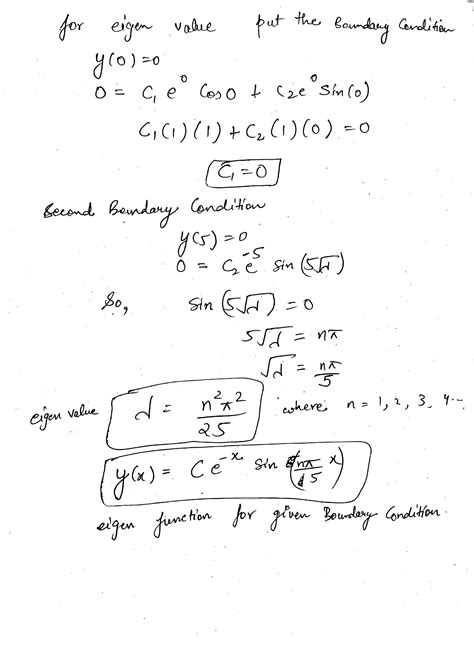 for eigen value put the Boundary Condition
y(0) = 0
0 = C₁ e⁰ Cos0 + C₂e⁰ Sin(0)
C₁(1)(1) + C₂(1)(0) = 0
C₁ = 0
Second Boundary Condition
y(5) = 0
0 = C₂ e⁻⁵ Sin (5√λ)
So, Sin (5√λ) = 0
5√λ = nπ
√λ = nπ/5
eigen value λ = n²π²/25 where n = 1, 2, 3, 4...
y(x) = C e⁻ˣ Sin (nπ/5 x)
eigen function for given Boundary Condition.